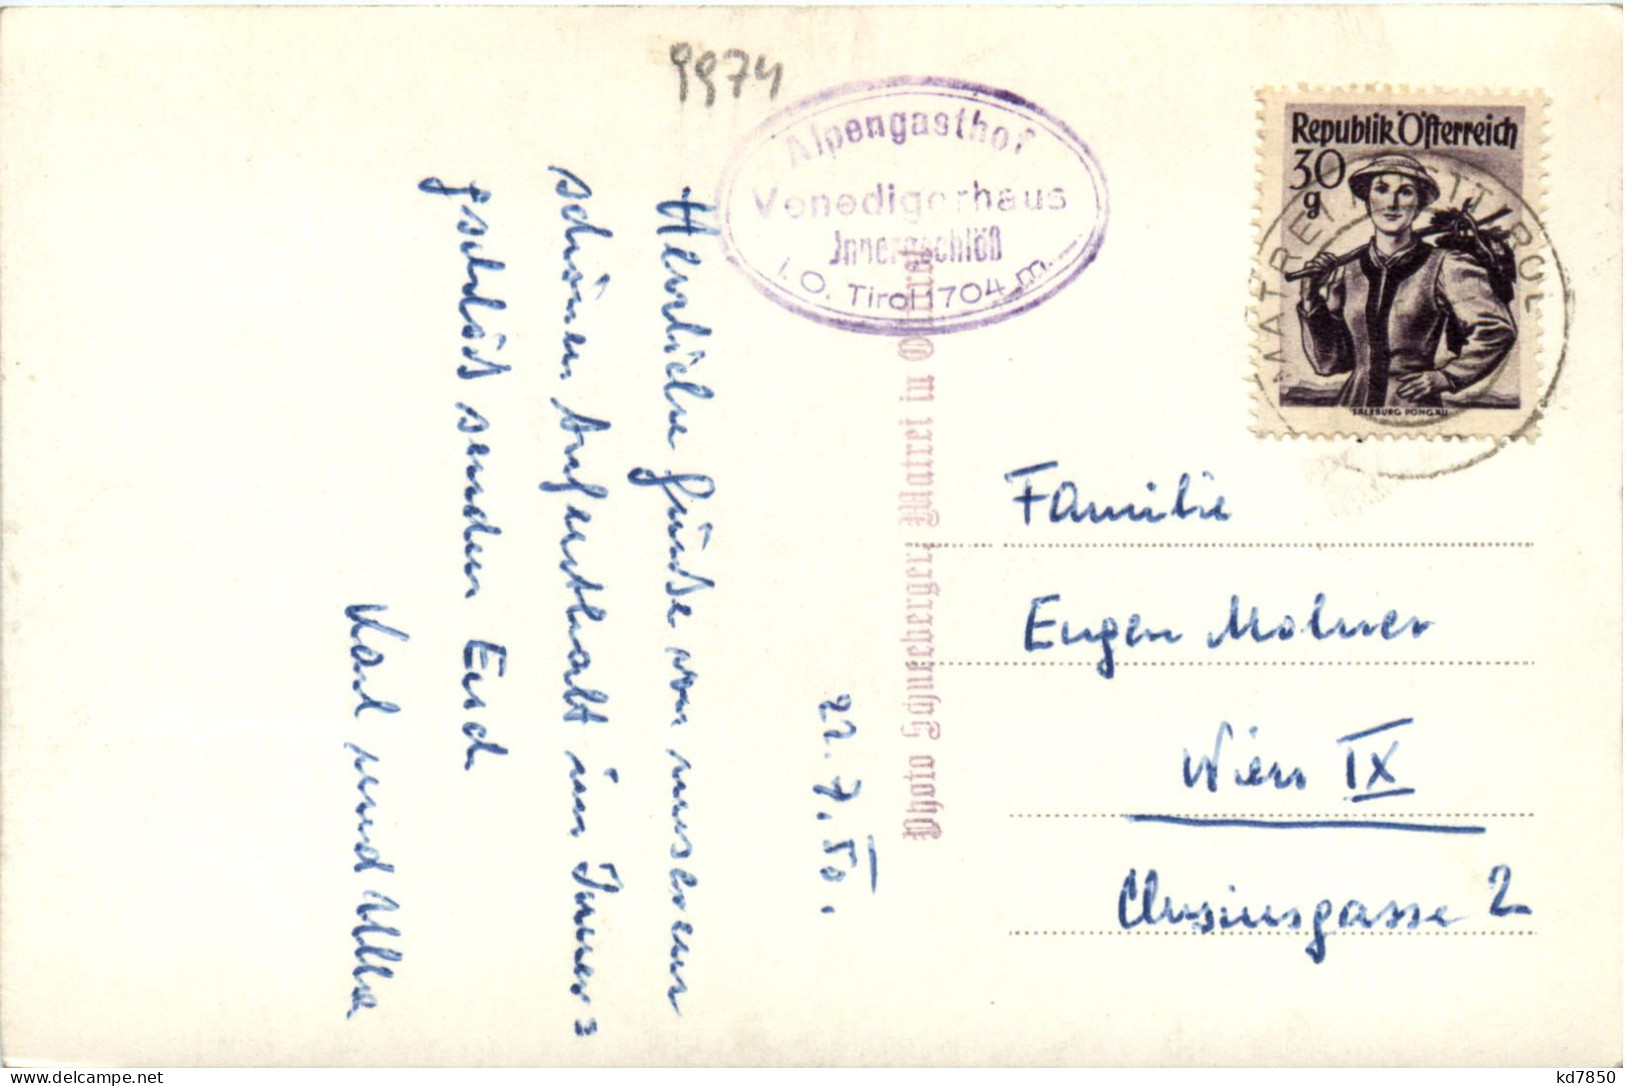 9974
Alpengasthof
Venedigerhaus
Innergschlöß
i. O. Tirol 1704 m
Republik Österreich
30
g
SALZBURG PONGAU
MATREI IN OSTTIROL
22.7.50.
Herzliche Grüße von unserem
schönen Aufenthalt im Inner=
gschlöß senden Euch
Karl und Illa
Photo Schneeberger, Matrei in Osttirol
Familie
Eugen Molner
Wien IX
Clusiusgasse 2
kd7850